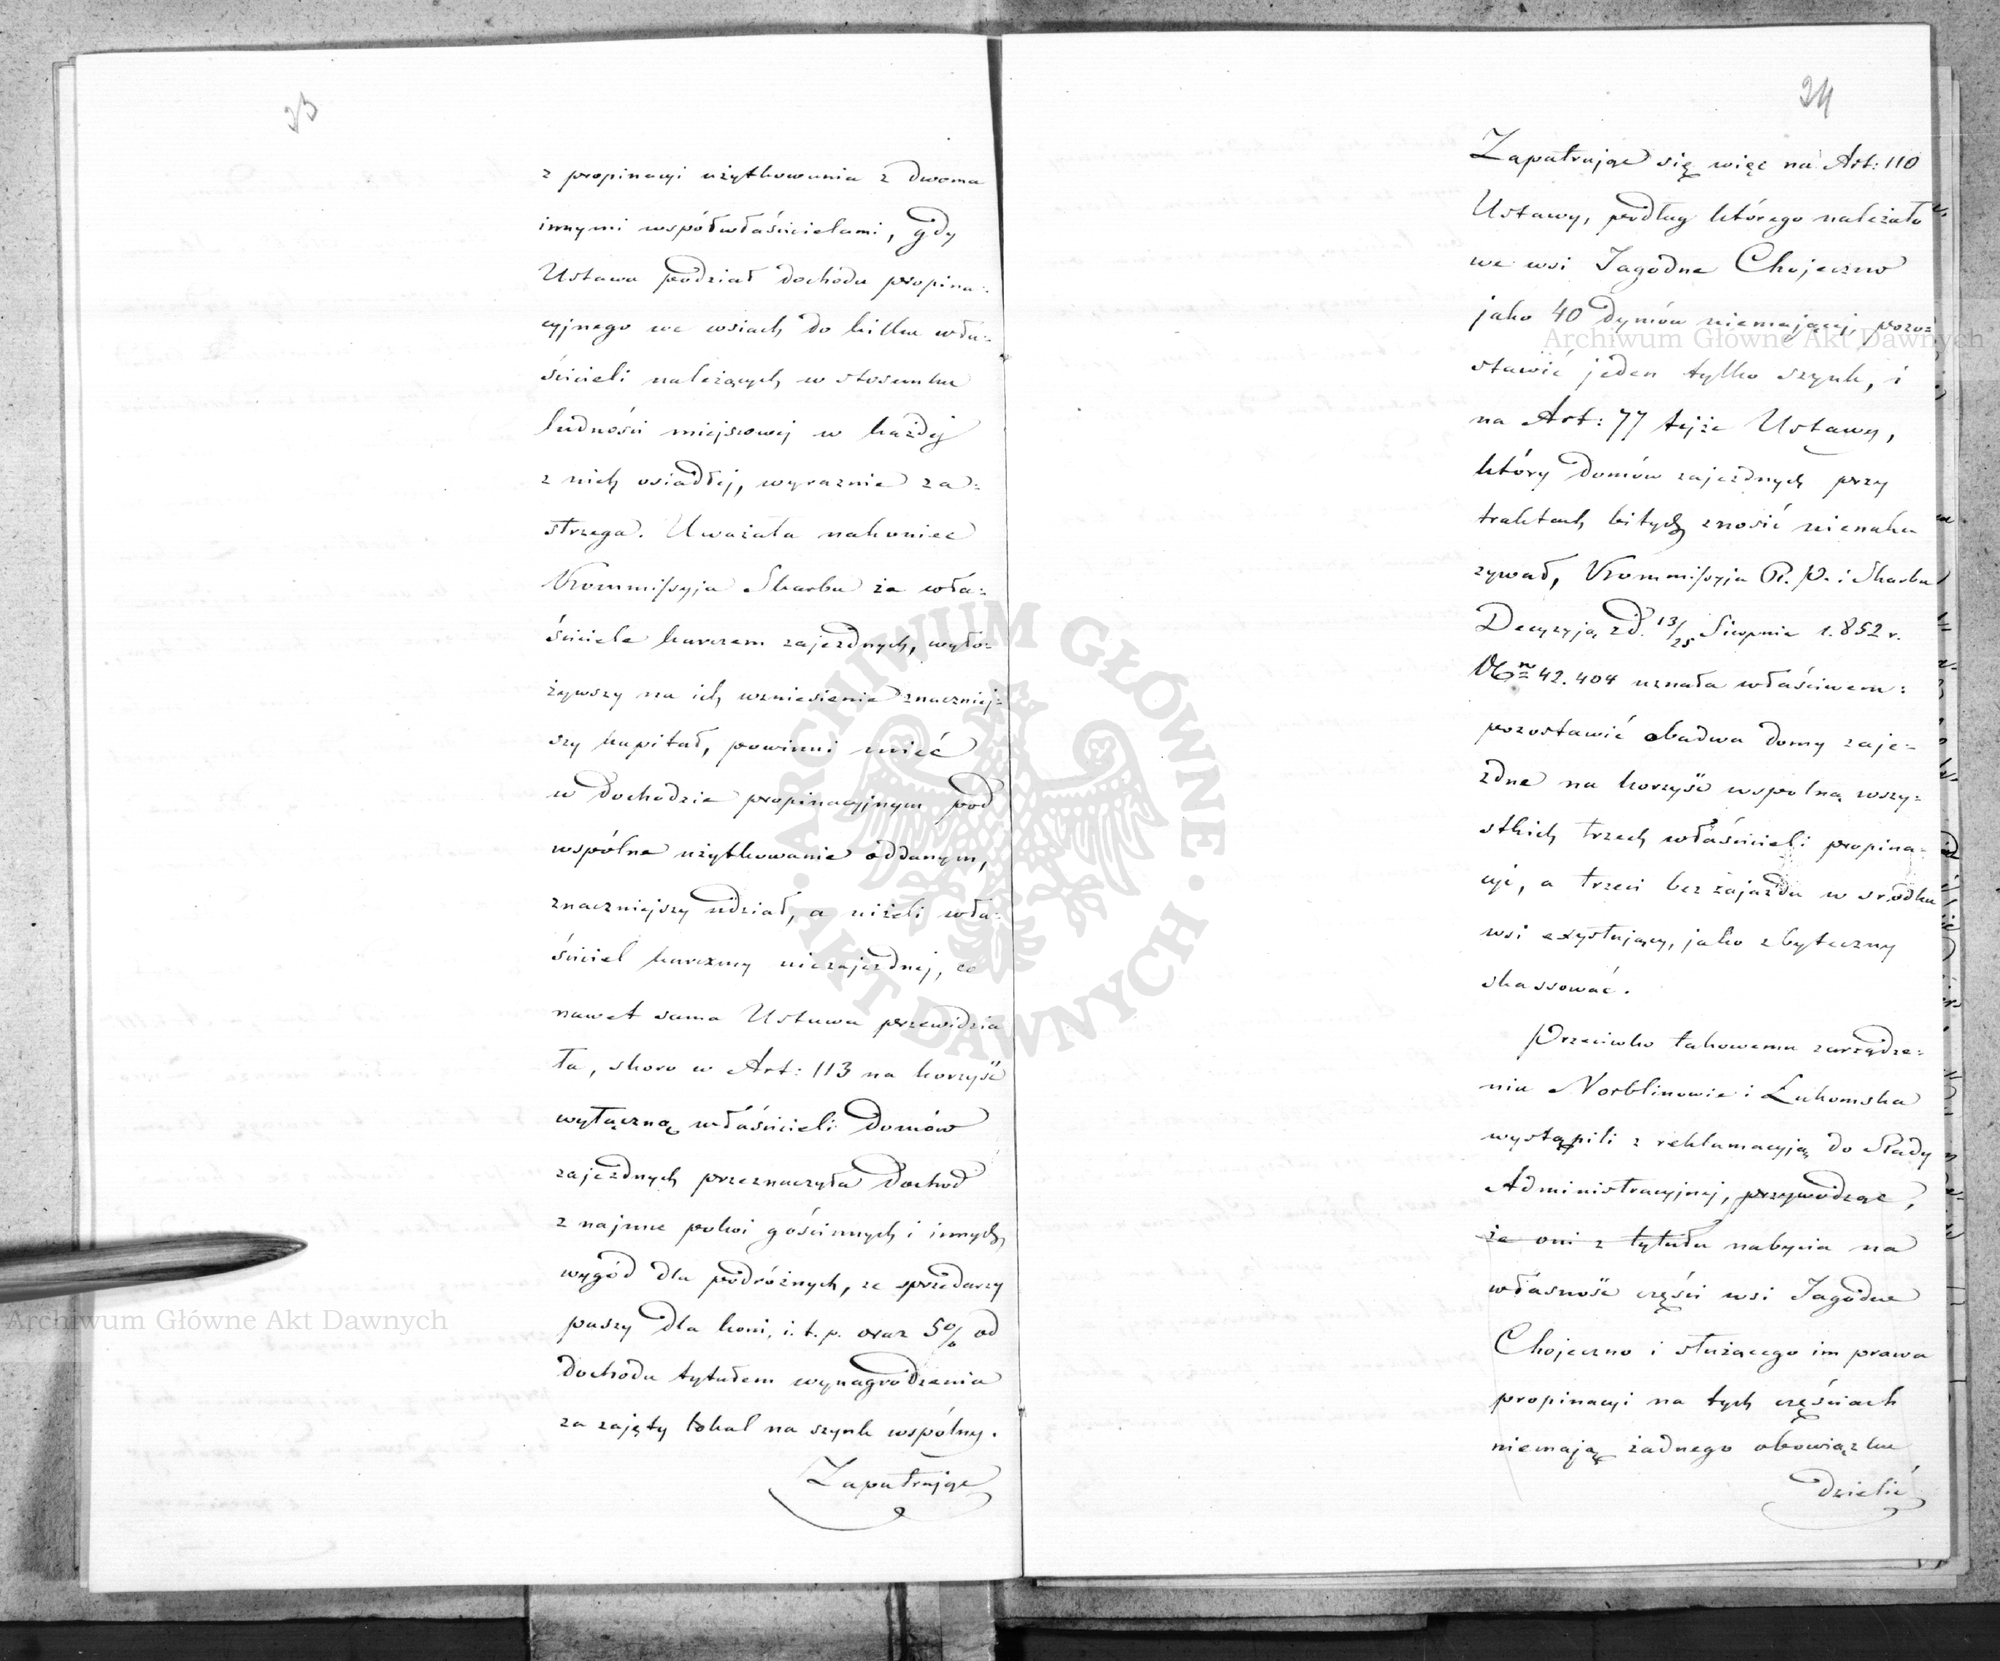 33
z propinacyi użytkowania z dwoma
innymi współwłaścicielami, gdy
Ustawa podział dochodu propina=
cyjnego we wsiach do kilku wła=
ścicieli należących w stosunku
ludności miejscowej w każdej
z nich osiadłej, wyraznie za=
strzega. Uważała nakoniec
Kommissyja Skarbu że wła=
ściciele karczem zajezdnych, wyło=
żywszy na ich wzniesienie znaczniej=
szy kapitał, powinni mieć
w dochodzie propinacyjnym pod
wspólne użytkowanie oddanym,
znaczniejszy udział, a niżeli wła=
ściciel karczmy niezajezdnej, co
nawet sama Ustawa przewidzia
ła, skoro w Art: 113 na korzyść
wyłączną właścicieli domów
zajezdnych przeznaczyła dochod
z najmu pokoi gościnnych i innych
wygód dla podróżnych, ze sprzedarzy
paszy dla koni, i. t. p. oraz 5% od
dochodu tytułem wynagrodzenia
za zajęty lokal na szynk wspólny.
Zapatrując
34
Zapatrując się więc na Art: 110
Ustawy, podług którego należało
we wsi Jagodne Chojeczno
jako 40 dymów niemającej, pozo=
stawić jeden tylko szynk, i
na Art: 77 tejże Ustawy,
który domów zajezdnych przy
traktach bitych znosić nienaka
zywał, Kommissyja R. P. i Skarbu
Decyzyją z d. 13/25 Sierpnia 1852 r.
No 42.404 uznała właściwem:
pozostawić obadwa domy zaje=
zdne na korzyść wspolną wszy=
stkich trzech właścicieli propina=
cyi, a trzeci bez zajazdu w srodku
wsi exystujący, jako zbyteczny
skassować.
Przeciwko takowemu zarządze=
niu Norblinowie i Łukomska
wystąpili z reklamacyją do Rady
Administracyjnej, przywodząc,
że oni z tytułu nabycia na
własność części wsi Jagodne
Chojeczno i służącego im prawa
propinacyi na tych częściach
niemają żadnego obowiązku
dzielić
Archiwum Główne Akt Dawnych
Archiwum Główne Akt Dawnych
ARCHIWUM GŁÓWNE AKT DAWNYCH